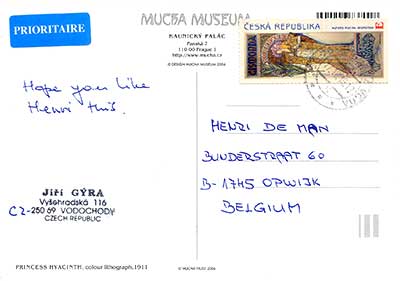 PRIORITAIRE
MUCHA MUSEUM
KAUNICKÝ PALÁC
Panská 7
110 00 Prague 1
http://www.mucha.cz
© DESIGN MUCHA MUSEUM 2006
ČESKÁ REPUBLIKA
E
Hope you like
Henri this.
HENRI DE MAN
BUNDERSTRAAT 60
B-1745 OPWIJK
BELGIUM
Jiří GÝRA
Vyšehradská 116
CZ-250 69 VODOCHODY
CZECH REPUBLIC
PRINCESS HYACINTH, colour lithograph, 1911
© MUCHA TRUST 2006